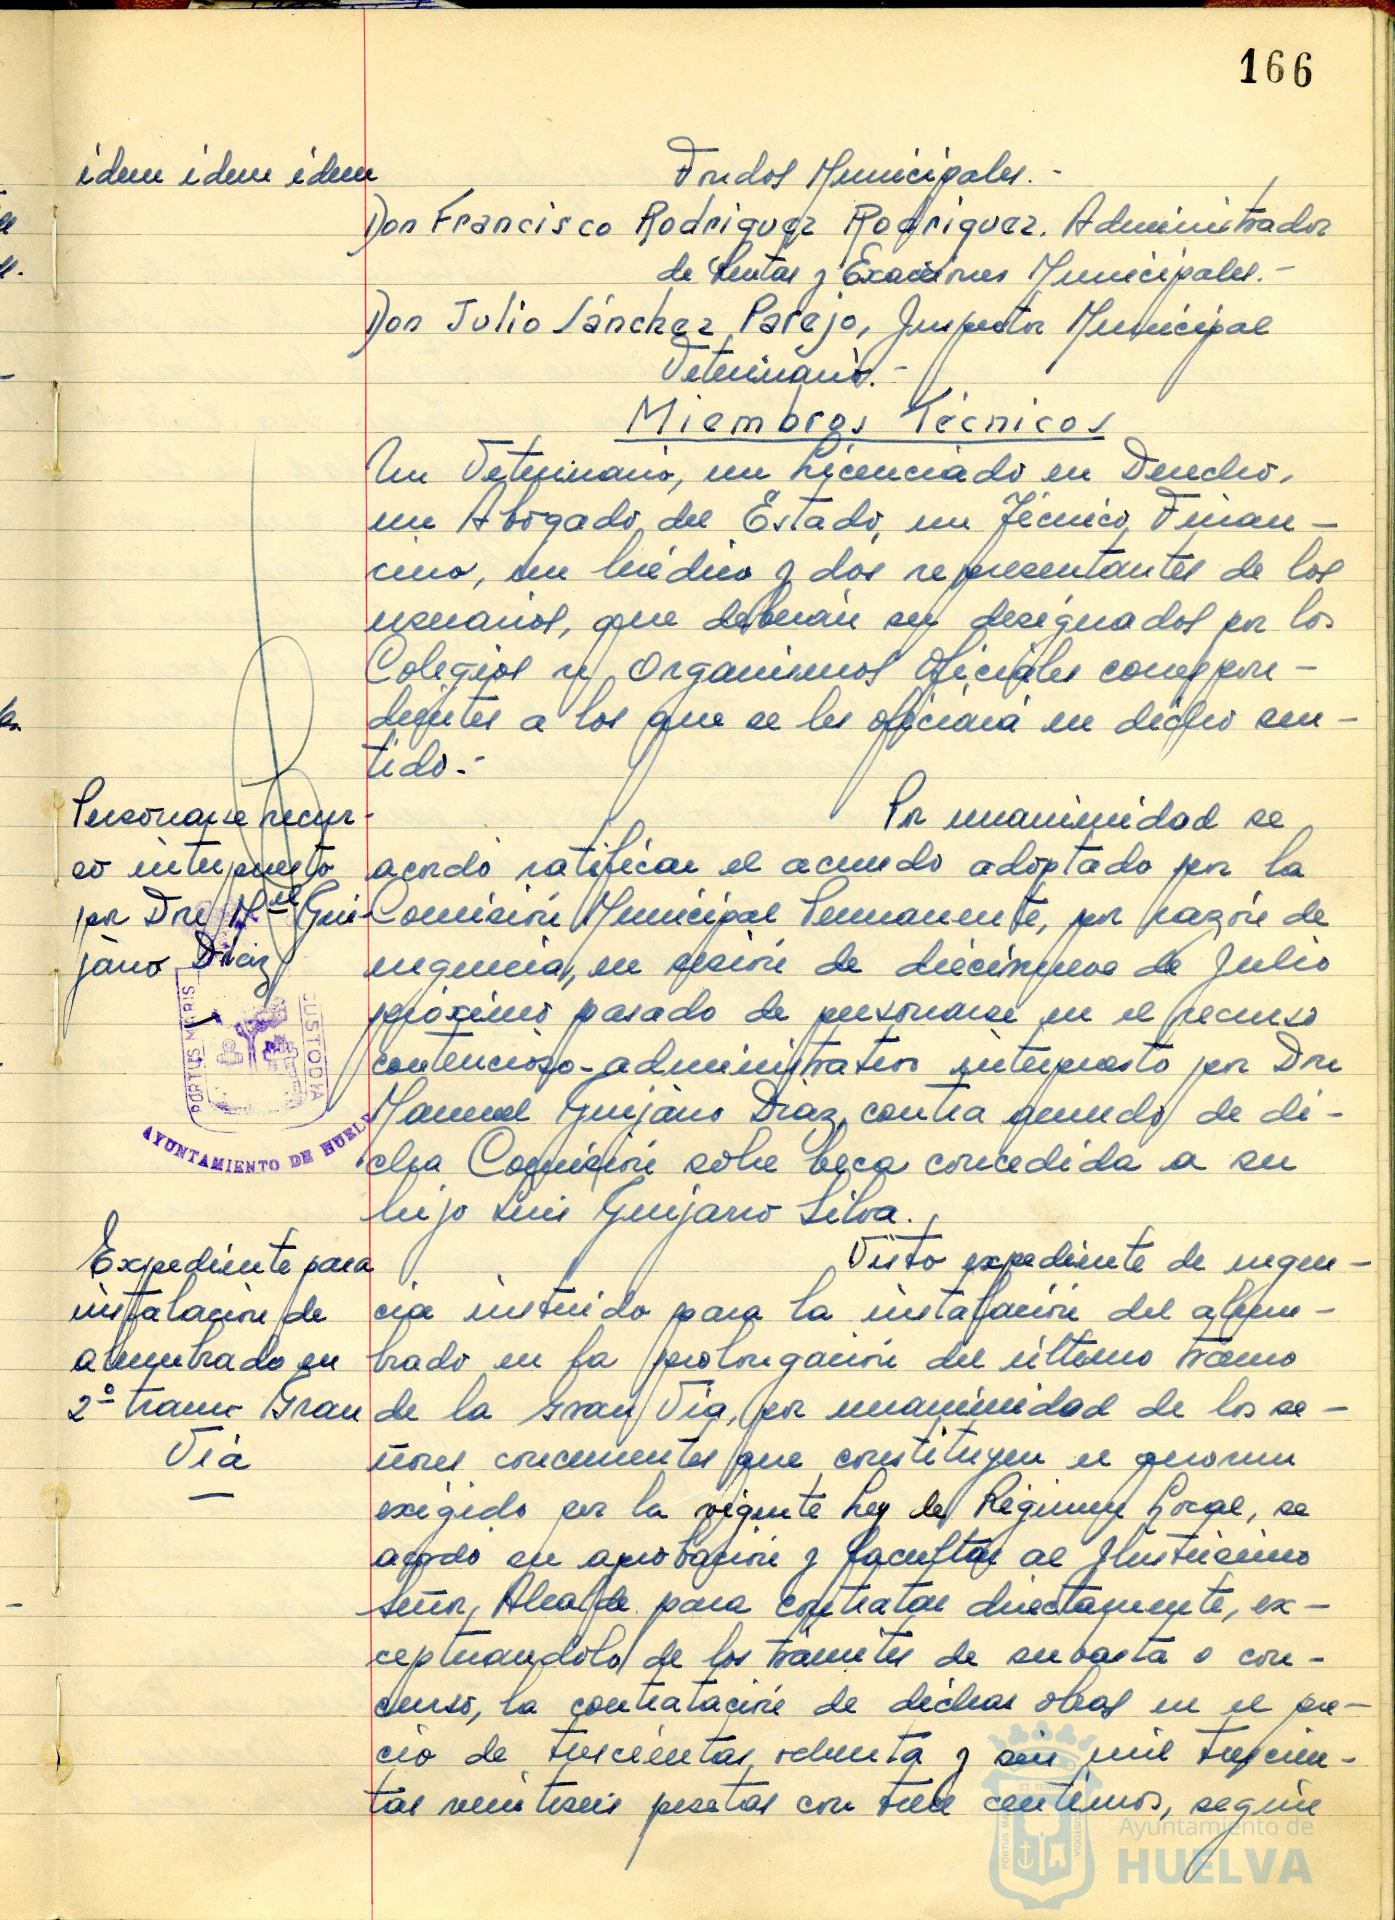 166
idem idem idem
Fondos Municipales.-
Don Francisco Rodriguez Rodriguez. Administrador
de Rentas y Exacciones Municipales.-
Don Julio Sánchez Parejo, Inspector Municipal
Veterinario.-
Miembros Técnicos
Un Veterinario, un Licenciado en Derecho,
un Abogado del Estado, un Técnico Finan-
ciero, un Médico y dos representantes de los
usuarios, que deberán ser designados por los
Colegios u Organismos Oficiales correspon-
dientes a los que se les oficiará en dicho sen-
tido.-
Personarse recur-
so interpuesto
por Don Mel Gui-
jarro Diaz
Por unanimidad se
acordó ratificar el acuerdo adoptado por la
Comisión Municipal Permanente, por razón de
urgencia, en sesión de diecinueve de Julio
próximo pasado de personarse en el recurso
contencioso-administrativo interpuesto por Don
Manuel Guijarro Diaz, contra acuerdo de di-
cha Comisión sobre beca concedida a su
hijo Luis Guijarro Silva.
PORTUS MARIS
CUSTODIA
AYUNTAMIENTO DE HUELVA
Expediente para
instalación de
alumbrado en
2º tramo Gran
Vía
Visto expediente de urgen-
cia instruido para la instalación del alum-
brado en la prolongación del último tramo
de la Gran Vía, por unanimidad de los se-
ñores concurrentes que constituyen el quorum
exigido por la vigente Ley de Régimen Local, se
acordó su aprobación y facultar al Ilustrisimo
Señor Alcalde para contratar directamente, ex-
ceptuandolo de los trámites de subasta o con-
curso, la contratación de dichas obras en el pre-
cio de trescientas ochenta y seis mil trescien-
tas veintiseis pesetas con trece centimos, según
PORTUS MARIS
ET TERRAE
CUSTODIA
Ayuntamiento de
HUELVA